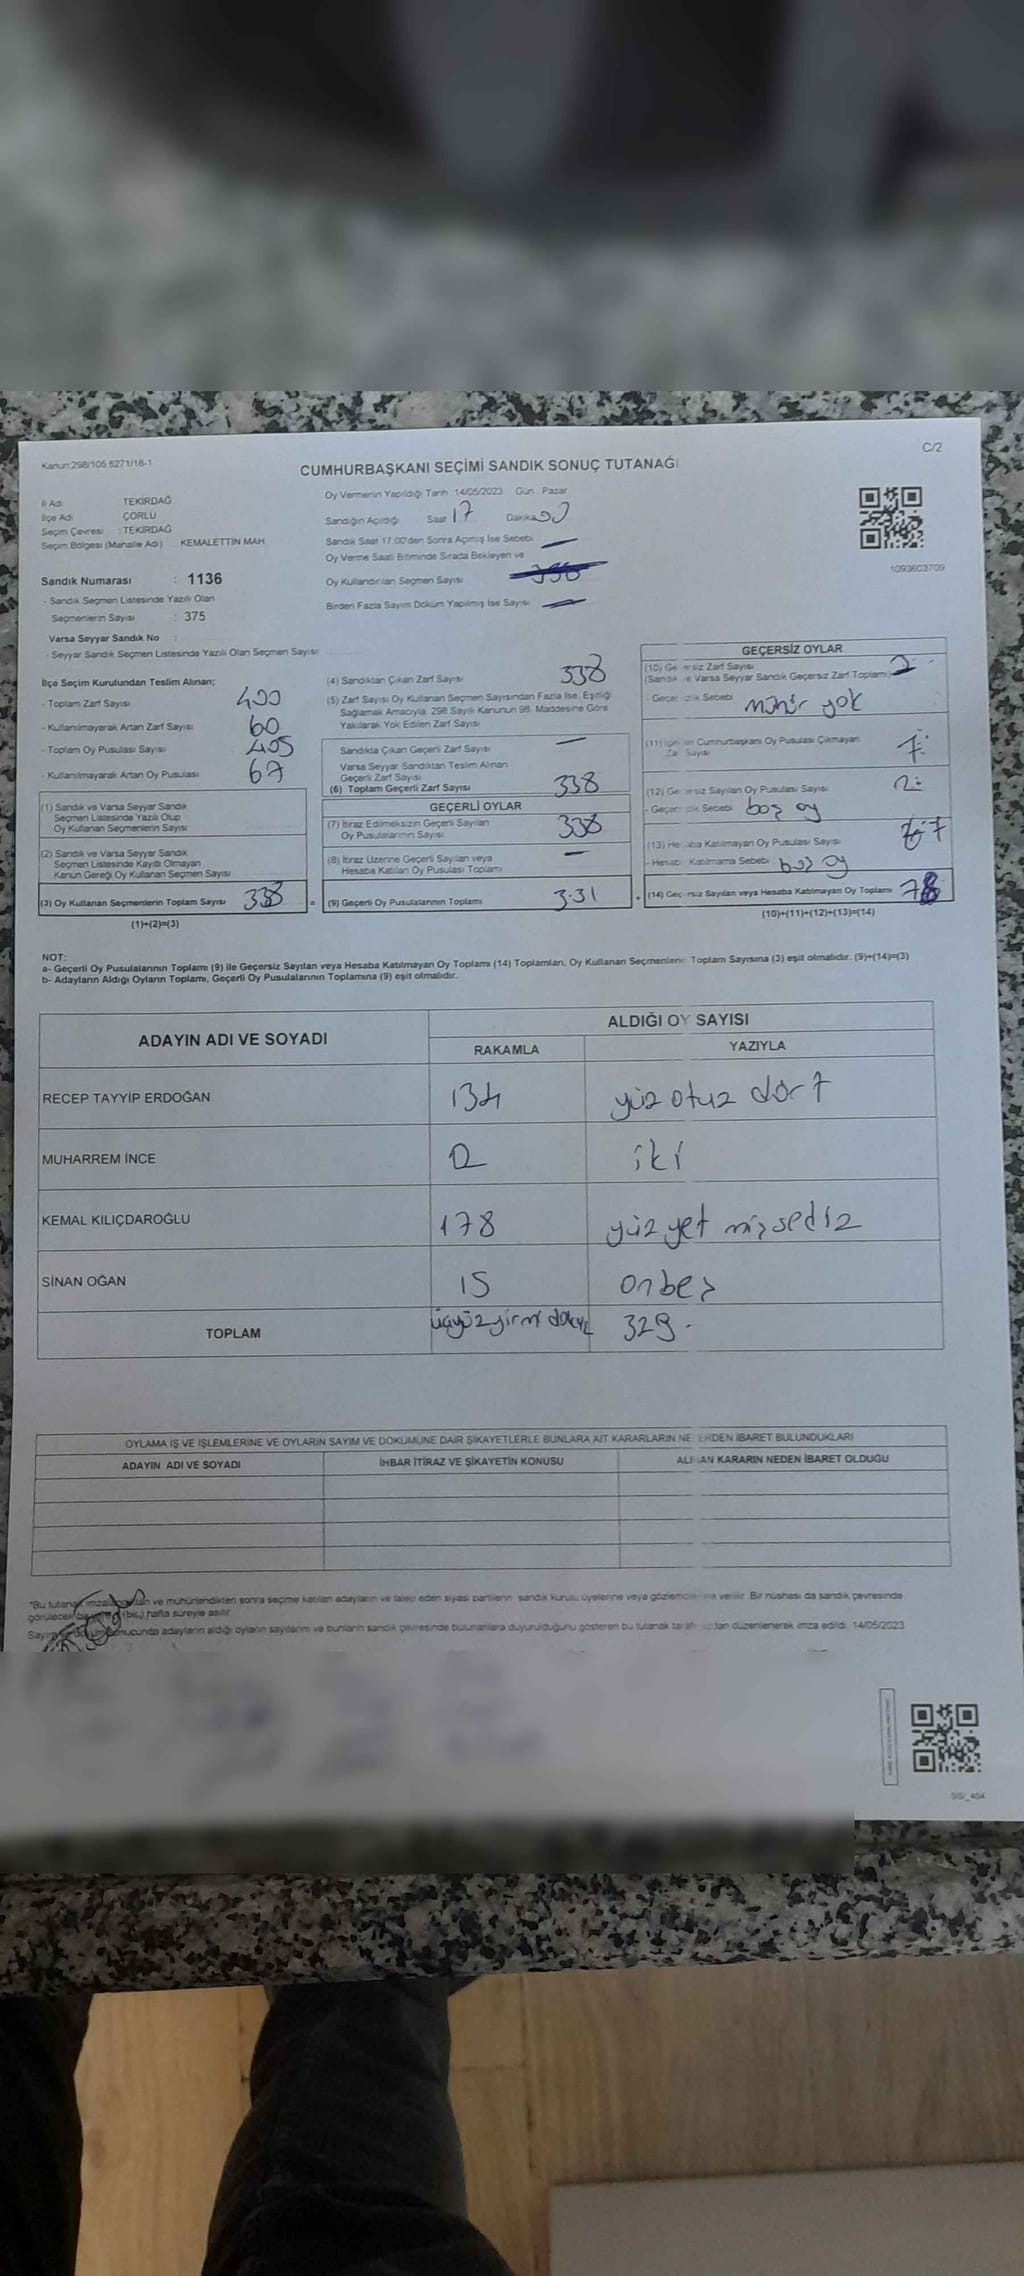 C/2
Kanun:298/105;6271/18-1
CUMHURBAŞKANI SEÇİMİ SANDIK SONUÇ TUTANAĞI
İl Adı TEKİRDAĞ
İlçe Adı ÇORLU
Seçim Çevresi : TEKİRDAĞ
Seçim Bölgesi (Mahalle Adı) KEMALETTİN MAH.
Oy Vermenin Yapıldığı Tarih :14/05/2023 Gün : Pazar
Sandığın Açıldığı Saat 17 Dakika
Sandık Saat 17.00'den Sonra Açılmış İse Sebebi
Oy Verme Saati Bitiminde Sırada Bekleyen ve
Oy Kullandırılan Seçmen Sayısı
Birden Fazla Sayım Döküm Yapılmış İse Sayısı
1093603709
Sandık Numarası : 1136
- Sandık Seçmen Listesinde Yazılı Olan
Seçmenlerin Sayısı : 375
Varsa Seyyar Sandık No :
- Seyyar Sandık Seçmen Listesinde Yazılı Olan Seçmen Sayısı:
İlçe Seçim Kurulundan Teslim Alınan;
- Toplam Zarf Sayısı 400
- Kullanılmayarak Artan Zarf Sayısı 60
- Toplam Oy Pusulası Sayısı 405
- Kullanılmayarak Artan Oy Pusulası 67
(1) Sandık ve Varsa Seyyar Sandık
Seçmen Listesinde Yazılı Olup
Oy Kullanan Seçmenlerin Sayısı
(2) Sandık ve Varsa Seyyar Sandık
Seçmen Listesinde Kayıtlı Olmayan
Kanun Gereği Oy Kullanan Seçmen Sayısı
(3) Oy Kullanan Seçmenlerin Toplam Sayısı 338 =
(1)+(2)=(3)
(4) Sandıktan Çıkan Zarf Sayısı 338
(5) Zarf Sayısı Oy Kullanan Seçmen Sayısından Fazla İse, Eşitliği
Sağlamak Amacıyla, 298 Sayılı Kanunun 98. Maddesine Göre
Yakılarak Yok Edilen Zarf Sayısı
Sandıkta Çıkan Geçerli Zarf Sayısı
Varsa Seyyar Sandıktan Teslim Alınan
Geçerli Zarf Sayısı
(6) Toplam Geçerli Zarf Sayısı 338
GEÇERLİ OYLAR
(7) İtiraz Edilmeksizin Geçerli Sayılan
Oy Pusulalarının Sayısı 338
(8) İtiraz Üzerine Geçerli Sayılan veya
Hesaba Katılan Oy Pusulası Toplamı
(9) Geçerli Oy Pusulalarının Toplamı 331 +
GEÇERSİZ OYLAR
(10) Geçersiz Zarf Sayısı
(Sandık ve Varsa Seyyar Sandık Geçersiz Zarf Toplamı) 2
- Geçersizlik Sebebi mühür yok
(11) İçinden Cumhurbaşkanı Oy Pusulası Çıkmayan
Zarf Sayısı
(12) Geçersiz Sayılan Oy Pusulası Sayısı 2
- Geçersizlik Sebebi boş oy
(13) Hesaba Katılmayan Oy Pusulası Sayısı 7
- Hesaba Katılmama Sebebi boş oy
(14) Geçersiz Sayılan veya Hesaba Katılmayan Oy Toplamı
(10)+(11)+(12)+(13)=(14)
NOT:
a- Geçerli Oy Pusulalarının Toplamı (9) ile Geçersiz Sayılan veya Hesaba Katılmayan Oy Toplamı (14) Toplamları, Oy Kullanan Seçmenlerin Toplam Sayısına (3) eşit olmalıdır. (9)+(14)=(3)
b- Adayların Aldığı Oyların Toplamı, Geçerli Oy Pusulalarının Toplamına (9) eşit olmalıdır.
ADAYIN ADI VE SOYADI ALDIĞI OY SAYISI
RAKAMLA YAZIYLA
RECEP TAYYİP ERDOĞAN 134 yüz otuz dört
MUHARREM İNCE 2 iki
KEMAL KILIÇDAROĞLU 178 yüz yetmişsediz
SİNAN OĞAN 15 onbeş
TOPLAM üçyüzyirmi dokuz 329.
OYLAMA İŞ VE İŞLEMLERİNE VE OYLARIN SAYIM VE DÖKÜMÜNE DAİR ŞİKAYETLERLE BUNLARA AİT KARARLARIN NELERDEN İBARET BULUNDUKLARI
ADAYIN ADI VE SOYADI İHBAR İTİRAZ VE ŞİKAYETİN KONUSU ALINAN KARARIN NEDEN İBARET OLDUĞU
*Bu tutanak imzalandıktan ve mühürlendikten sonra seçime katılan adayların ve talep eden siyasi partilerin sandık kurulu üyelerine veya gözlemcilerine verilir. Bir nüshası da sandık çevresinde
görülecek bir yere (bir) hafta süreyle asılır.
Sayım ve döküm sonucunda adayların aldığı oyların sayılarını ve bunların sandık çevresinde bulunanlara duyurulduğunu gösteren bu tutanak tarafımızdan düzenlenerek imza edildi. 14/05/2023